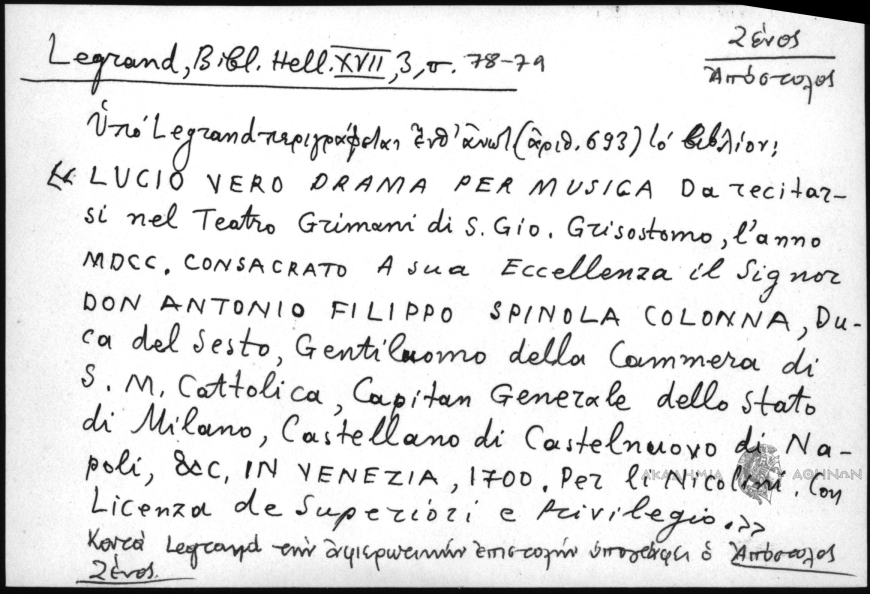 Legrand, Bibl. Hell. XVII, 3, σ. 78-79
Ζένος
Ἀπόστολος
Ὑπό Legrand περιγράφεται ἔνθ' ἀνωτ (ἀριθ. 693) τό βιβλίον:
« LUCIO VERO DRAMA PER MUSICA Da recitar-
si nel Teatro Grimani di S. Gio. Grisostomo, l'anno
MDCC. CONSACRATO A sua Eccellenza il Signor
DON ANTONIO FILIPPO SPINOLA COLONNA, Du-
ca del Sesto, Gentiluomo della Cammera di
S. M. Cattolica, Capitan Generale dello Stato
di Milano, Castellano di Castelnuovo di Na-
poli, &c. IN VENEZIA, 1700. Per li Nicolini. Con
ΑΚΑΔΗΜΙΑ ΑΘΗΝΩΝ
Licenza de Superiori e Privilegio.»
Κατά Legrand τήν ἀφιερωτικήν ἐπιστολήν ὑπογράφει ὁ Ἀπόστολος
Ζένος.